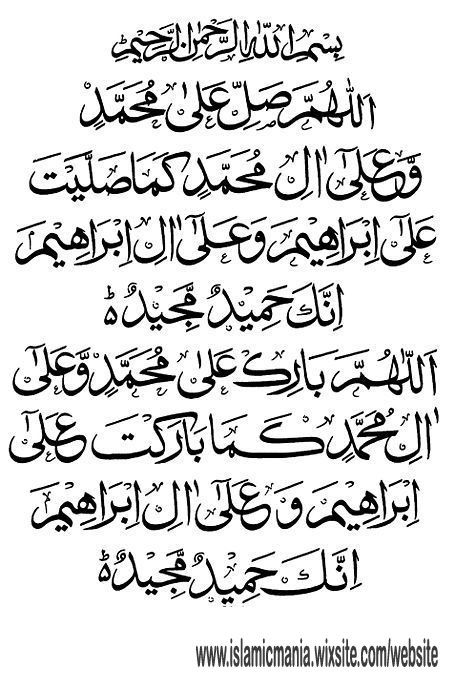 بِسْمِ اللهِ الرَّحْمٰنِ الرَّحِيْمِ
اَللّٰهُمَّ صَلِّ عَلٰى مُحَمَّدٍ
وَّعَلٰٓى اٰلِ مُحَمَّدٍ كَمَا صَلَّيْتَ
عَلٰٓى اِبْرَاهِيْمَ وَعَلٰٓى اٰلِ اِبْرَاهِيْمَ
اِنَّكَ حَمِيْدٌ مَّجِيْدٌ ؕ
اَللّٰهُمَّ بَارِكْ عَلٰى مُحَمَّدٍ وَّعَلٰٓى
اٰلِ مُحَمَّدٍ كَمَا بَارَكْتَ عَلٰٓى
اِبْرَاهِيْمَ وَعَلٰٓى اٰلِ اِبْرَاهِيْمَ
اِنَّكَ حَمِيْدٌ مَّجِيْدٌ ؕ
www.islamicmania.wixsite.com/website